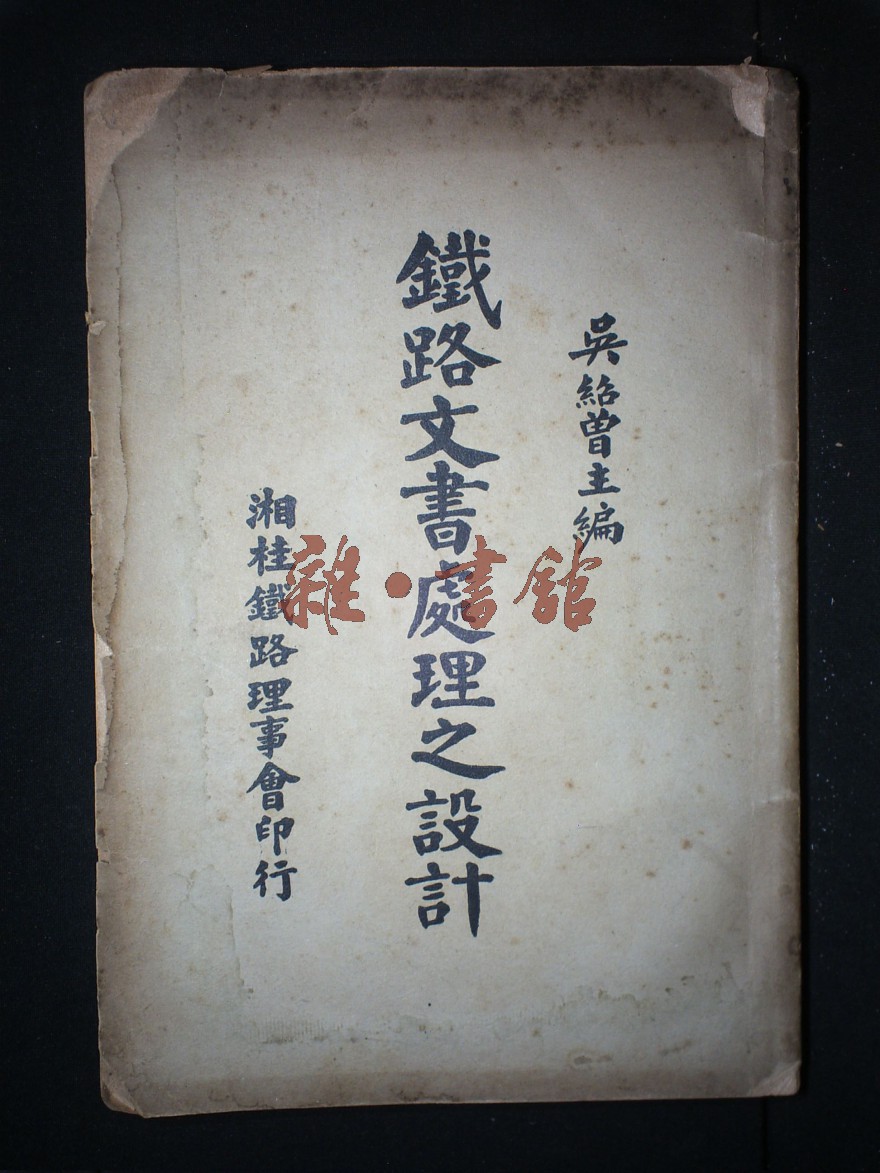 吳紹曾主編
鐵路文書處理之設計
湘桂鐵路理事會印行
雜·書館